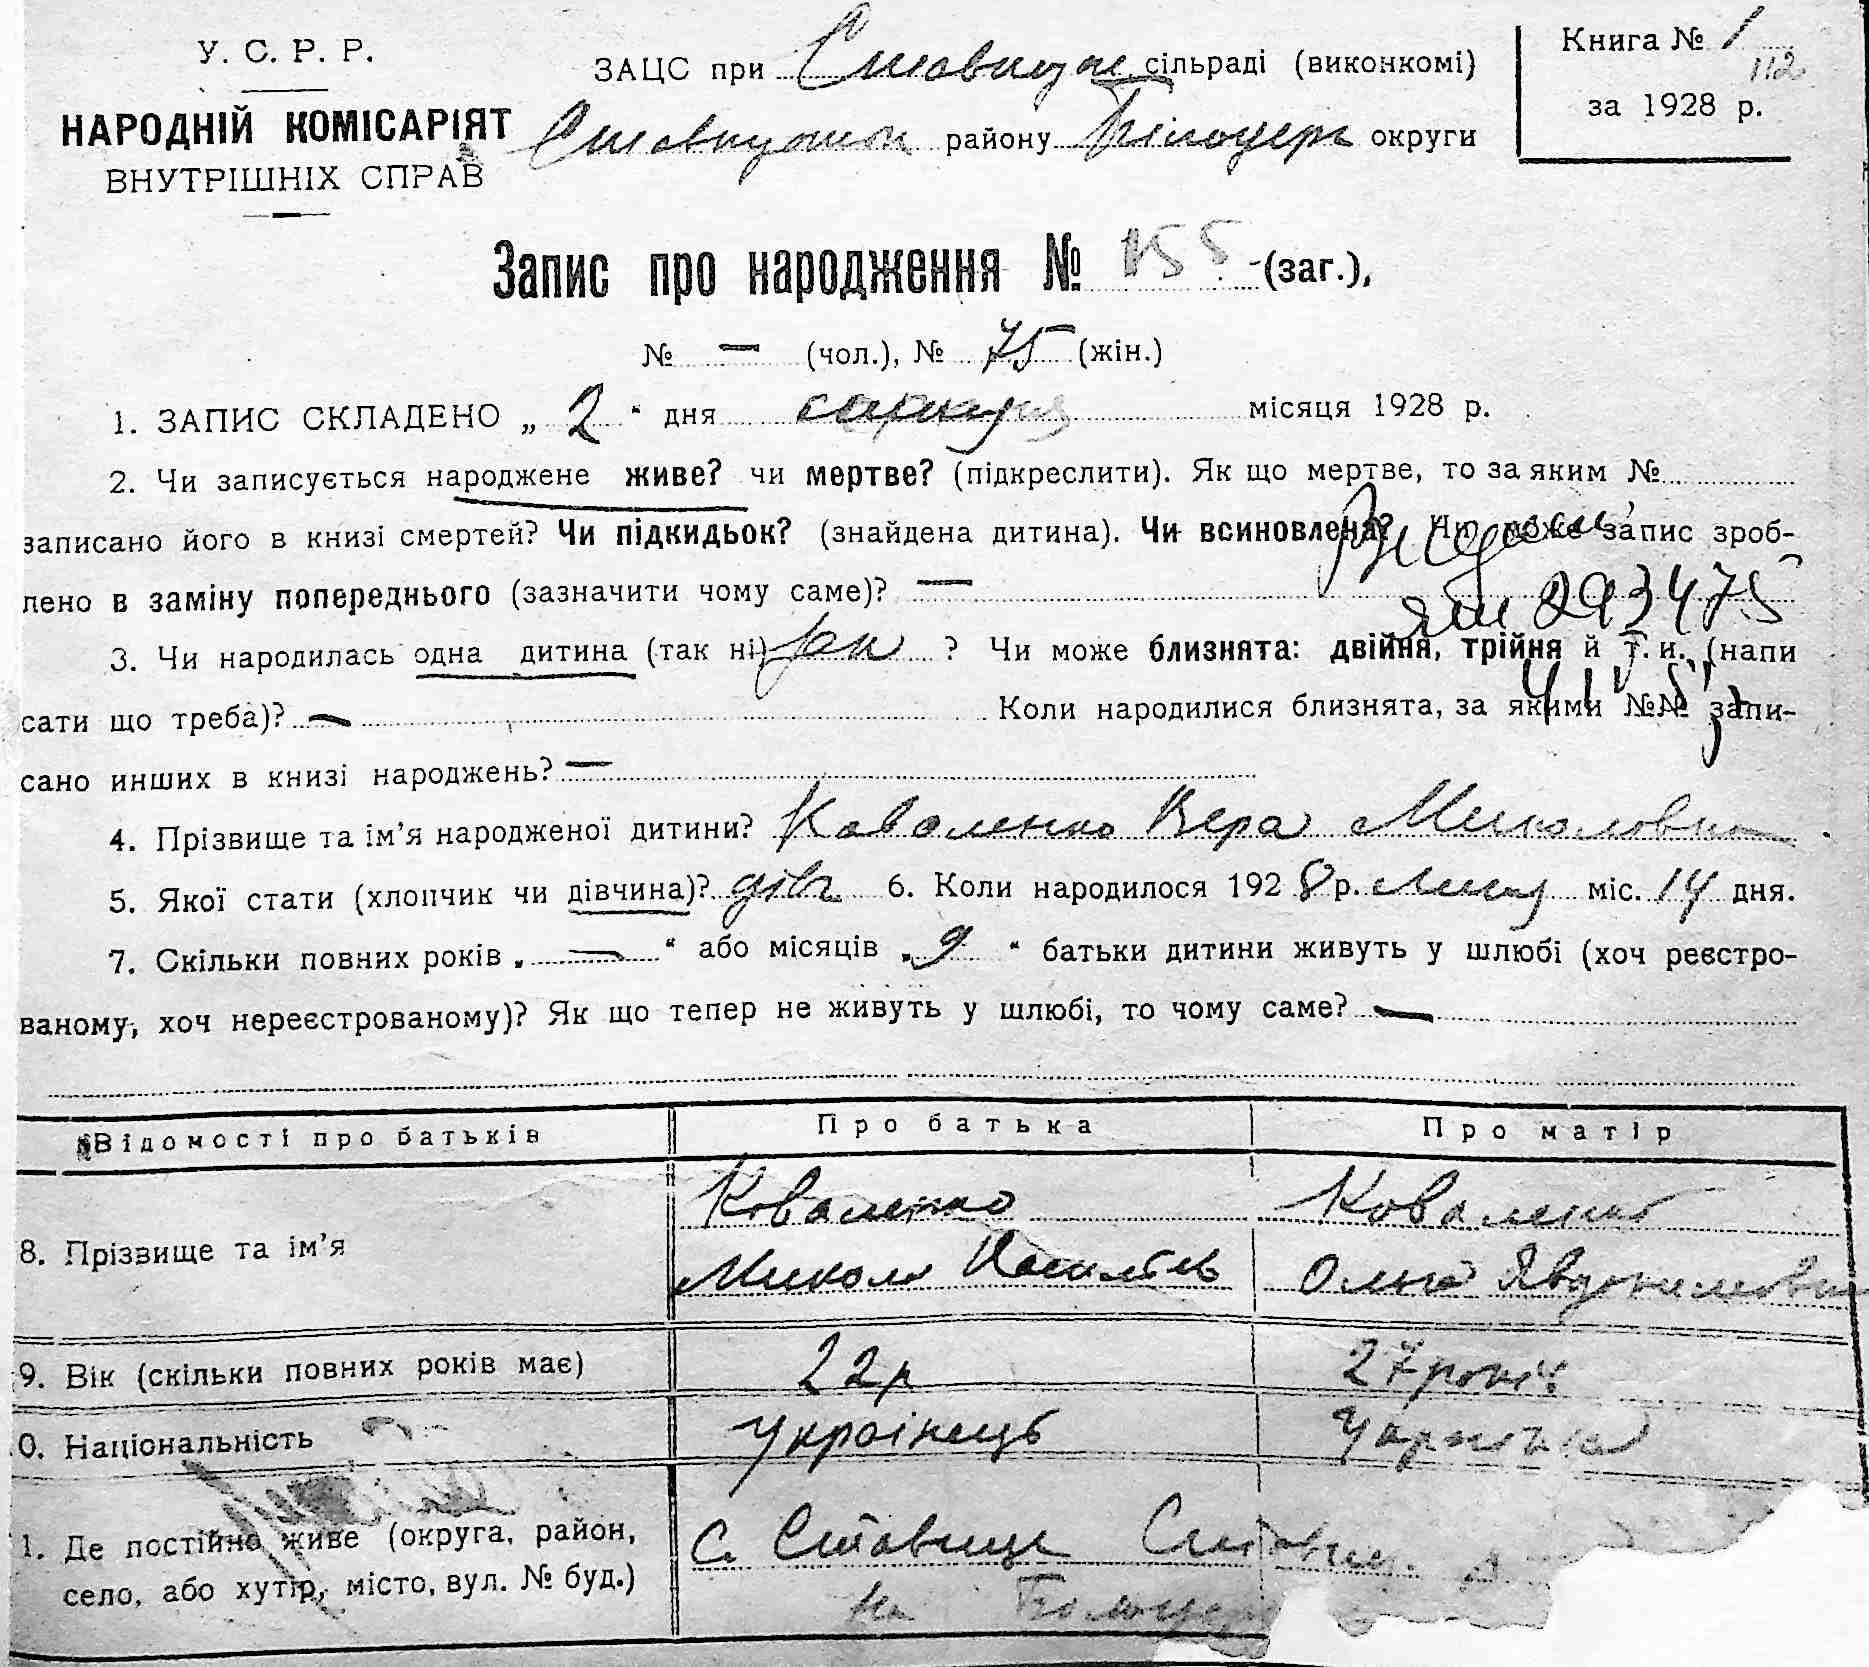 У. С. Р. Р.
НАРОДНІЙ КОМІСАРІЯТ
ВНУТРІШНІХ СПРАВ
ЗАЦС при Ставищан сільраді (виконкомі)
Ставищан району Білоцерк округи
Книга № 1
112
за 1928 р.
Запис про народження № 155 (заг.),
№ — (чол.), № 75 (жін.)
1. ЗАПИС СКЛАДЕНО „ 2 “ дня серпня місяця 1928 р.
2. Чи записується народжене живе? чи мертве? (підкреслити). Як що мертве, то за яким №
записано його в книзі смертей? Чи підкидьок? (знайдена дитина). Чи всиновлена? Чи може запис зроб-
лено в заміну попереднього (зазначити чому саме)? —
293475
3. Чи народилась одна дитина (так ні) так ? Чи може близнята: двійня, трійня й т. и. (напи
сати що треба)? — Коли народилися близнята, за якими №№ запи-
сано инших в книзі народжень? —
4. Прізвище та ім'я народженої дитини? Коваленко Вера Миколовна
5. Якої стати (хлопчик чи дівчина)? дівч 6. Коли народилося 1928 р. Липц міс. 14 дня.
7. Скільки повних років „ — “ або місяців „ 9 “ батьки дитини живуть у шлюбі (хоч реєстро-
ваному, хоч нереєстрованому)? Як що тепер не живуть у шлюбі, то чому саме? —
Відомості про батьків Про батька Про матір
8. Прізвище та ім'я Коваленко Коваленко
Микола Васильев Ольга
9. Вік (скільки повних років має) 22р 27 років
0. Національність Українець Українка
1. Де постійно живе (округа, район, с. Ставище Ставищ.
село, або хутір, місто, вул. № буд.) на Білоцерк